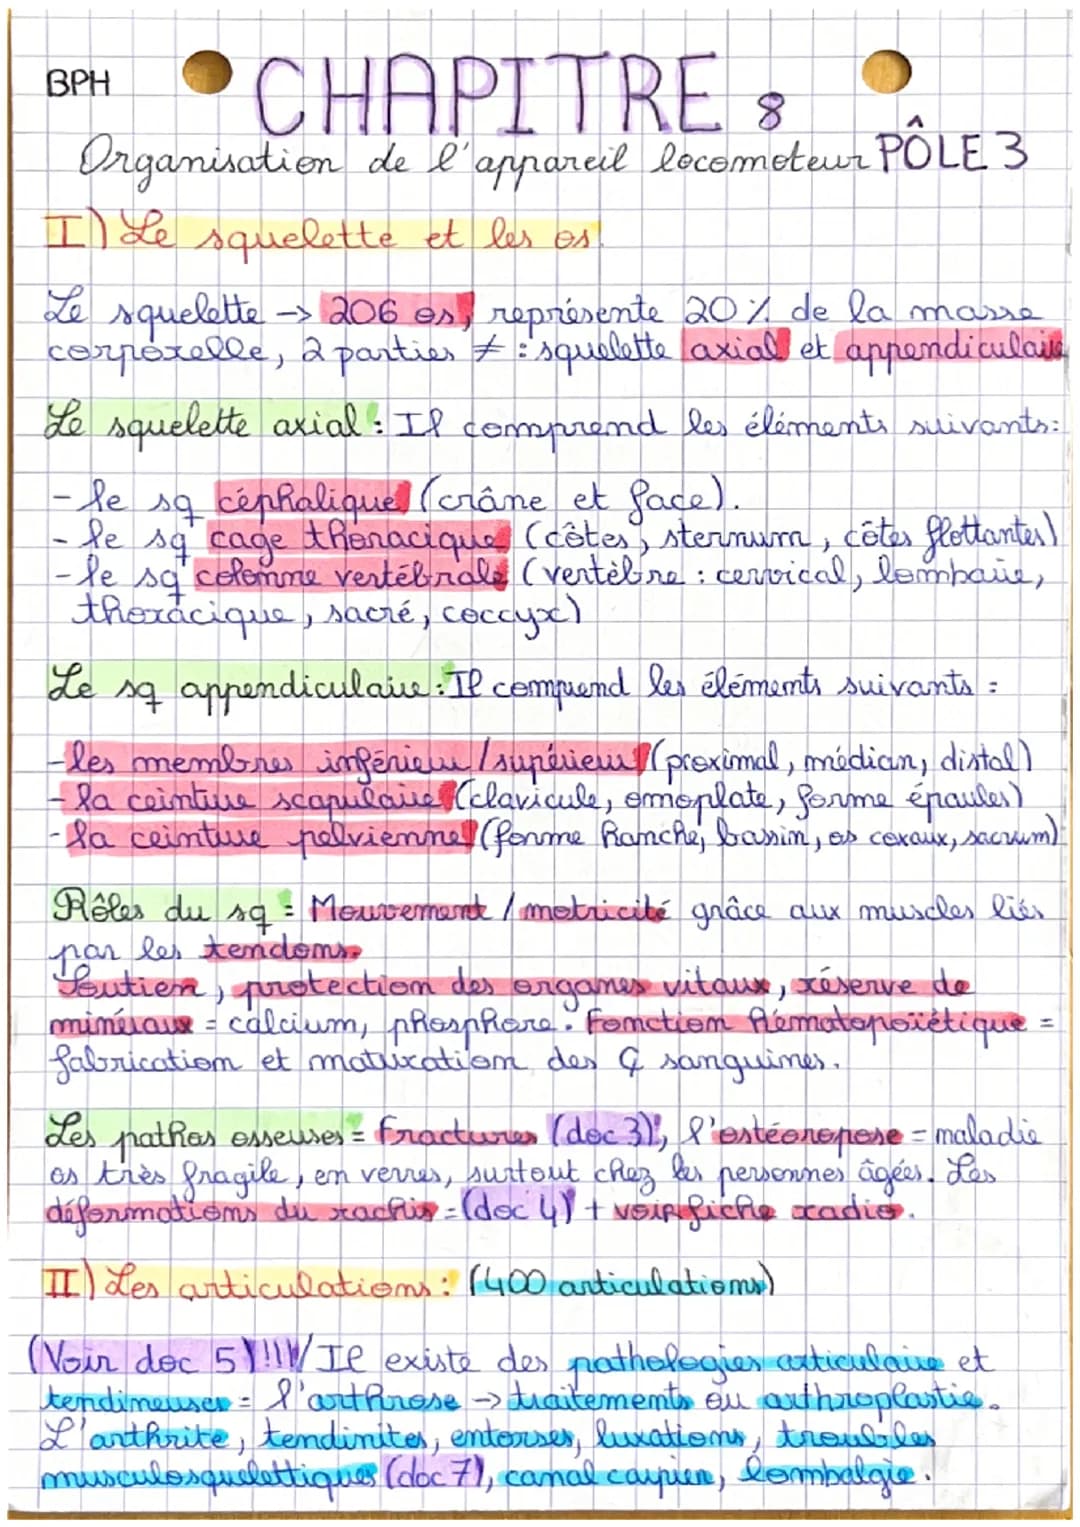 BPH
CHAPITRE 8
Organisation de l'appareil locomoteur PÔLE 3
I) Le squelette et les os
Le squelette → 206 os, représente 20 % de la masse
corporelle, 2 parties ≠ : squelette axial et appendiculaire
Le squelette axial : Il comprend les éléments suivants :
- le sq céphalique (crâne et face).
- le sq cage thoracique (côtes, sternum, côtes flottantes)
- le sq colonne vertébrale (vertèbre : cervical, lombaire,
thoracique, sacré, coccyx)
Le sq appendiculaire : Il comprend les éléments suivants :
- les membres inférieur / supérieur (proximal, médian, distal)
- la ceinture scapulaire (clavicule, omoplate, forme épaules)
- la ceinture pelvienne (forme hanche, bassin, os coxaux, sacrum)
Rôles du sq = Mouvement / motricité grâce aux muscles liés
par les tendons.
Soutien, protection des organes vitaux, réserve de
minéraux = calcium, phosphore. Fonction hématopoïétique =
fabrication et maturation des ₵ sanguines.
Les pathos osseuses = fractures (doc 3), l'ostéoropose = maladie
os très fragile, en verres, surtout chez les personnes âgées. Les
déformations du rachis = (doc 4) + voir fiche radio.
II) Les articulations : (400 articulations)
(Voir doc 5) !!!/ Il existe des pathologies articulaire et
tendineuses = l'arthrose → traitements ou arthroplastie.
L'arthrite, tendinites, entorses, luxations, troubles
musculosquelettiques (doc 7), canal carpien, lombalgie.